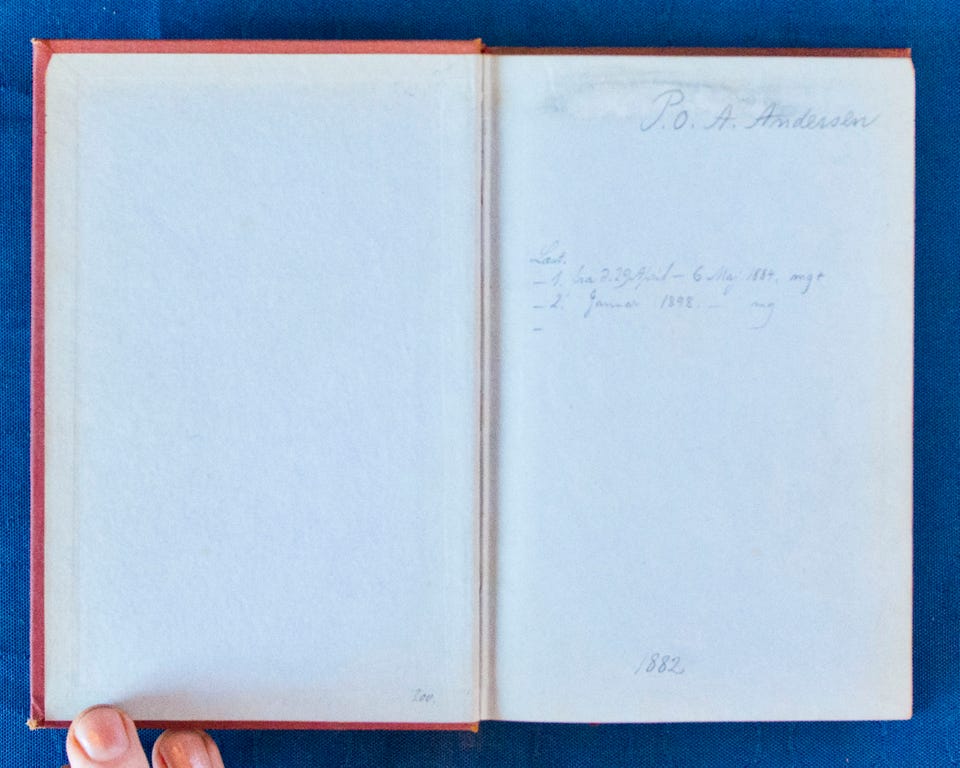 P. O. A. Andersen
Læst.
– 1. fra d. 29 April – 6 Maj 1884. mg+
– 2. Januar 1898. – mg
–
1882.
200.